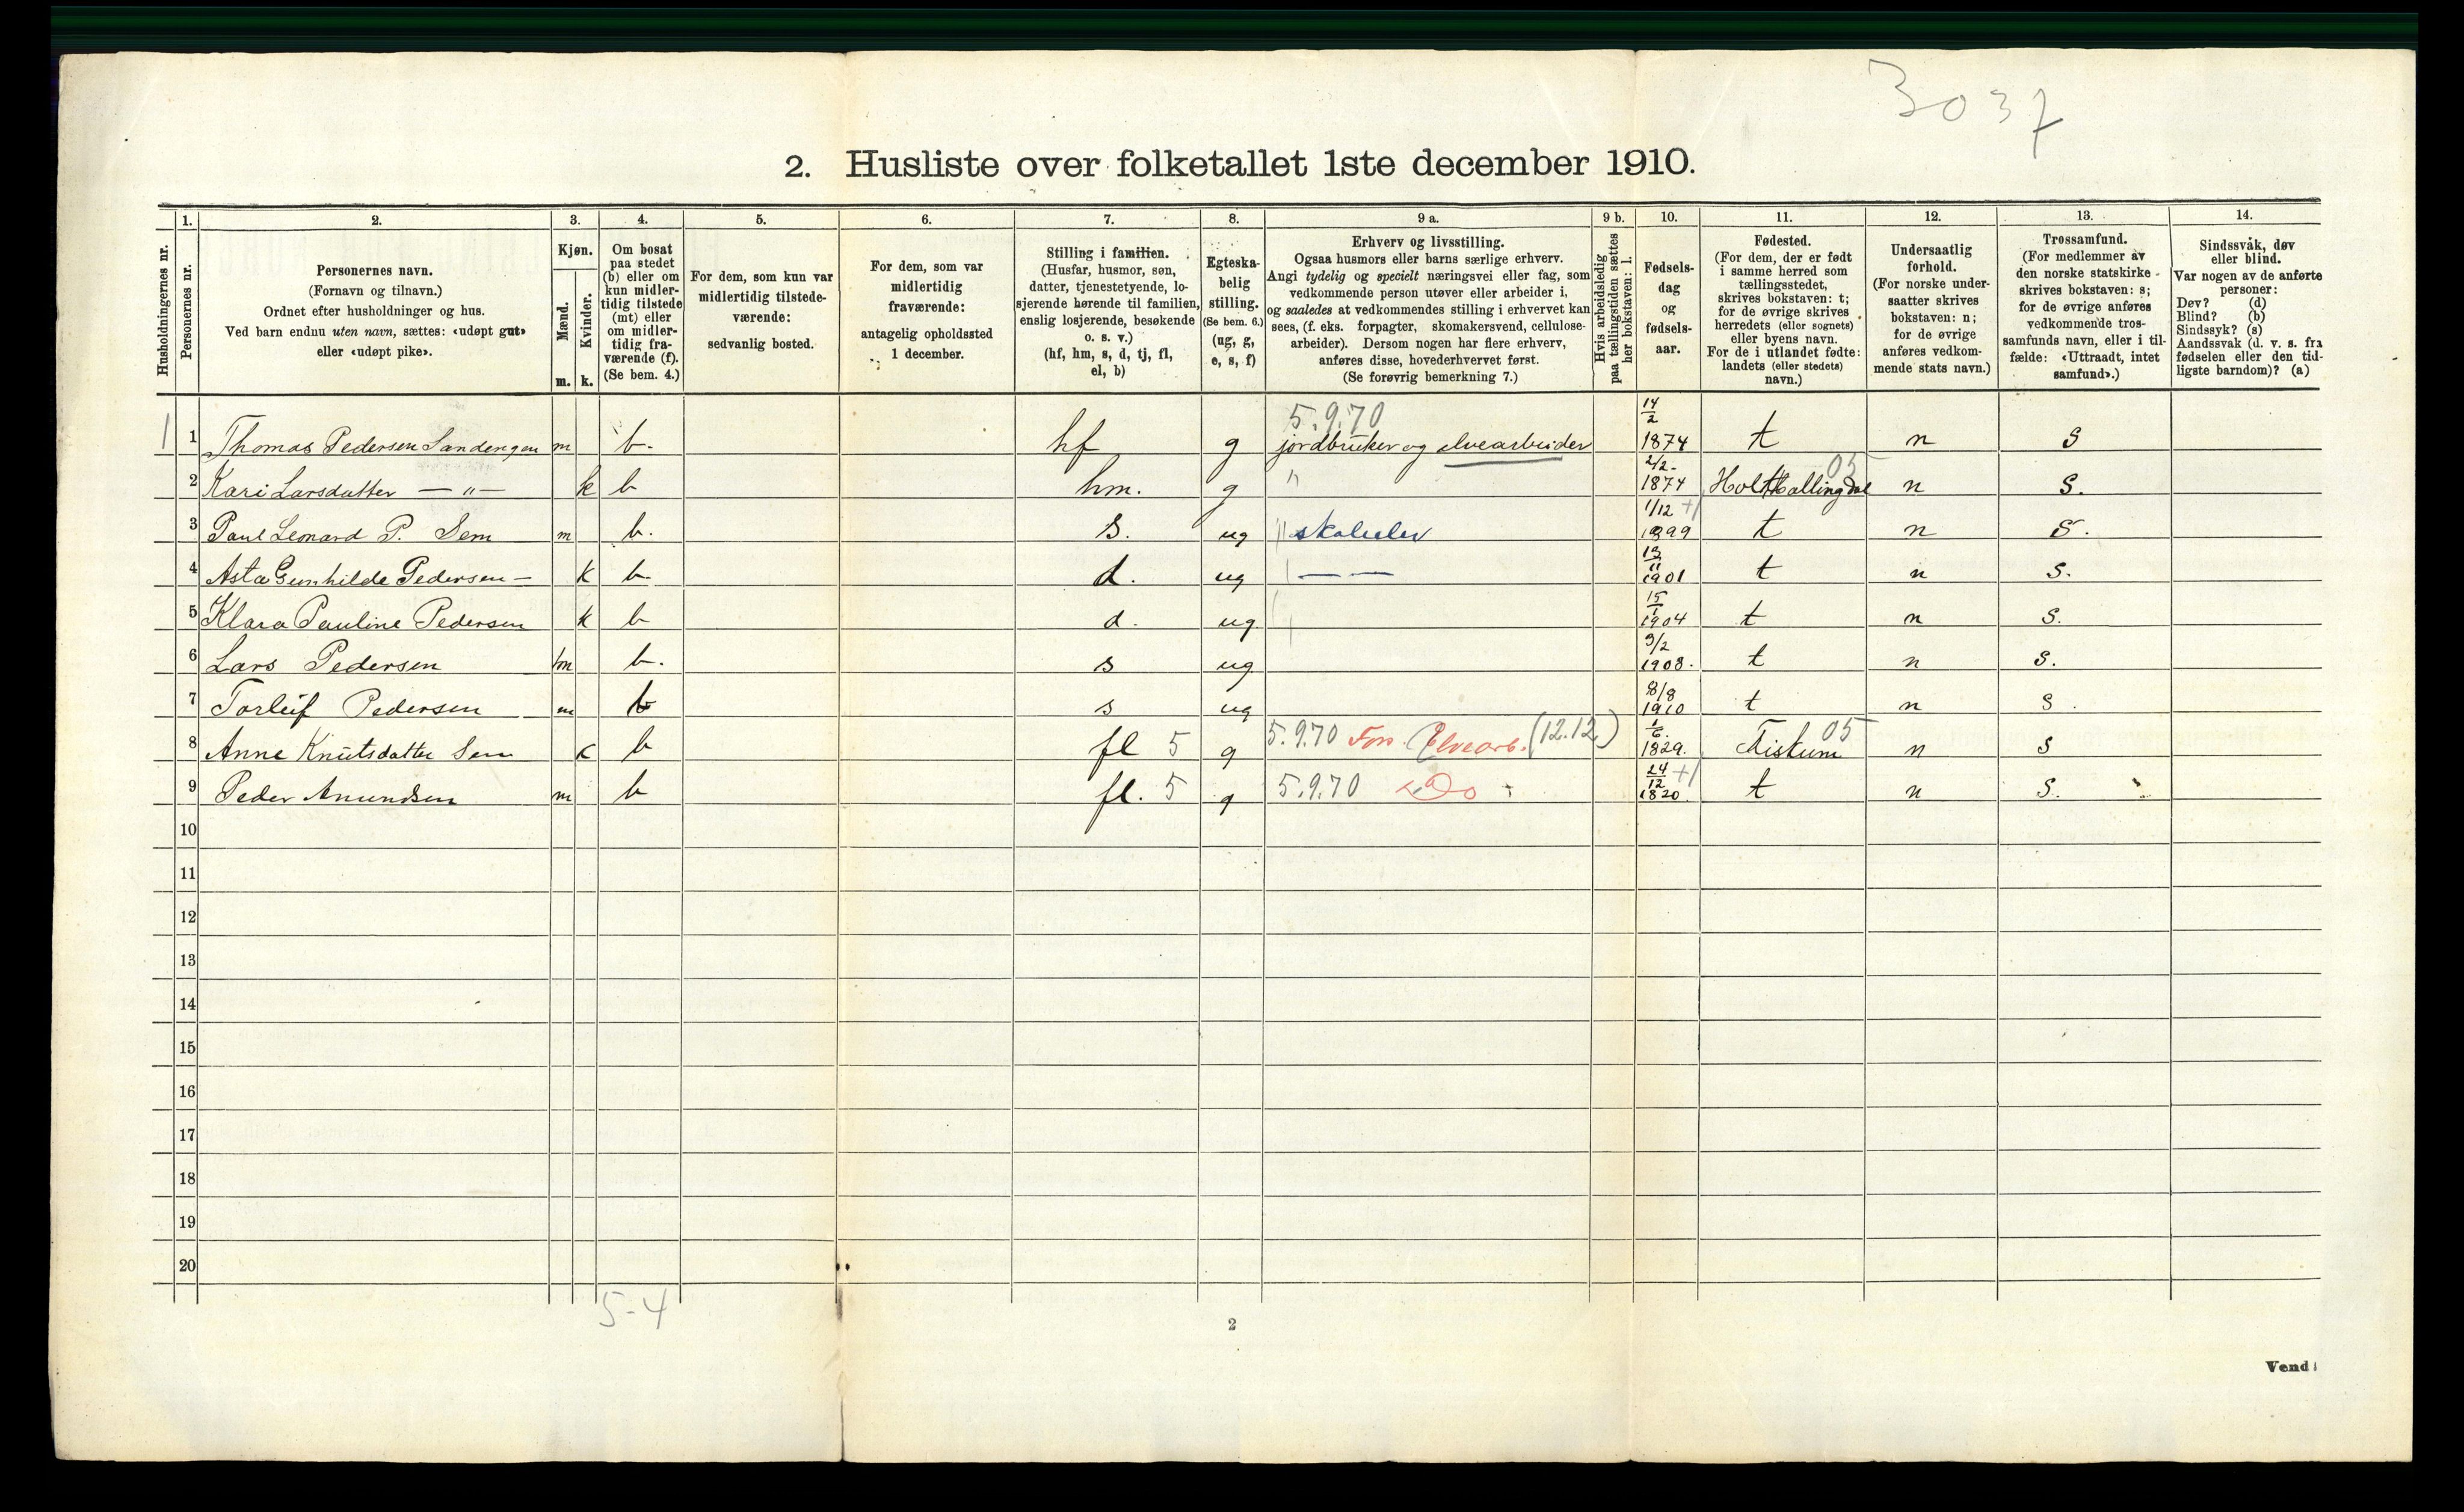 3037
2. Husliste over folketallet 1ste december 1910.
1. 2. 3. 4. 5. 6. 7. 8. 9 a. 9 b. 10. 11. 12. 13. 14.
Husholdningernes nr.
Personernes nr.
Personernes navn.
(Fornavn og tilnavn.)
Ordnet efter husholdninger og hus.
Ved barn endnu uten navn, sættes: «udøpt gut»
eller «udøpt pike».
Kjøn.
Mænd.
Kvinder.
m. k.
Om bosat
paa stedet
(b) eller om
kun midler-
tidig tilstede
(mt) eller
om midler-
tidig fra-
værende (f).
(Se bem. 4.)
For dem, som kun var
midlertidig tilstede-
værende:
sedvanlig bosted.
For dem, som var
midlertidig
fraværende:
antagelig opholdssted
1 december.
Stilling i familien.
(Husfar, husmor, søn,
datter, tjenestetyende, lo-
sjerende hørende til familien,
enslig losjerende, besøkende
o. s. v.)
(hf, hm, s, d, tj, fl,
el, b)
Egteska-
belig
stilling.
(Se bem. 6.)
(ug, g,
e, s, f)
Erhverv og livsstilling.
Ogsaa husmors eller barns særlige erhverv.
Angi tydelig og specielt næringsvei eller fag, som
vedkommende person utøver eller arbeider i,
og saaledes at vedkommendes stilling i erhvervet kan
sees, (f. eks. forpagter, skomakersvend, cellulose-
arbeider). Dersom nogen har flere erhverv,
anføres disse, hovederhvervet først.
(Se forøvrig bemerkning 7.)
Hvis arbeidsledig
paa tællingstiden sættes
her bokstaven: l.
Fødsels-
dag
og
fødsels-
aar.
Fødested.
(For dem, der er født
i samme herred som
tællingsstedet,
skrives bokstaven: t;
for de øvrige skrives
herredets (eller sognets)
eller byens navn.
For de i utlandet fødte:
landets (eller stedets)
navn.)
Undersaatlig
forhold.
(For norske under-
saatter skrives
bokstaven: n;
for de øvrige
anføres vedkom-
mende stats navn.)
Trossamfund.
(For medlemmer av
den norske statskirke
skrives bokstaven: s;
for de øvrige anføres
vedkommende tros-
samfunds navn, eller i til-
fælde: «Uttraadt, intet
samfund».)
Sindssvak, døv
eller blind.
Var nogen av de anførte
personer:
Døv? (d)
Blind? (b)
Sindssyk? (s)
Aandssvak (d. v. s. fra
fødselen eller den tid-
ligste barndom)? (a)
5.9.70
1 1 Thomas Pedersen Sandengen m b. hf g jordbruker og elvearbeider 14/2 1874 t n s
2 Kari Larsdatter — " — k b hm. g " 2/2- 1874 Hol Hallingdal 05 n s.
3 Paul Lenard P. Sem m b. s. ug skoleelev 1/12 1899 t n s.
4 Asta Gunhilde Pedersen — k b. d. ug — — 13/11 1901 t n s.
5 Klara Pauline Pedersen k b d. ug. 15/1 1904 t n s.
6 Lars Pedersen m b. s ug 9/2 1908. t n s.
7 Torleif Pedersen m b s ug 8/8 1910 t n s.
8 Anne Knutsdatter Sem k b fl 5 g 5.9.70 Fors. Elvearb. (12.12) 1/6. 1829. Fiskum 05 n s
9 Peder Amundsen m b fl. 5 g 5.9.70 Do 24/12 1820. t n s.
10
11
12
13
14
15
16
17
18
19
20
5-4
2
Vend!